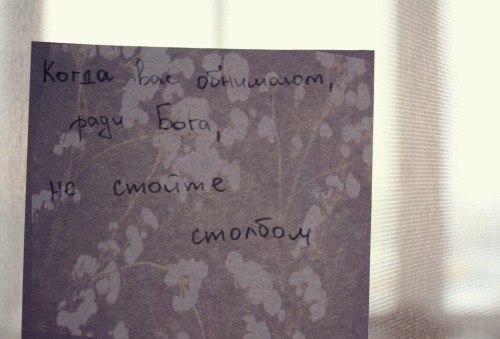 Когда вас обнимают,
ради Бога,
не стойте
столбом